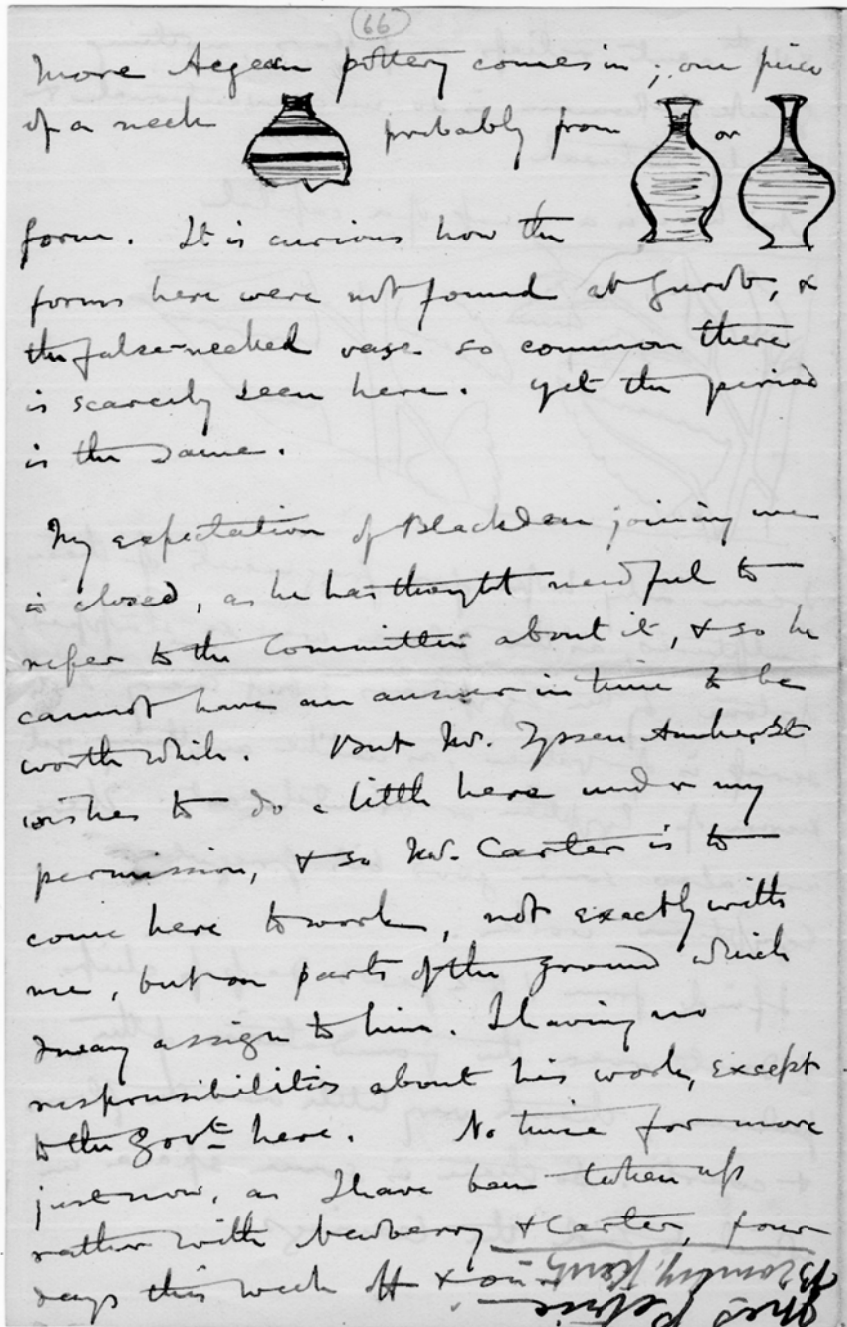 66
More Aegean pottery comes in; one piece
of a neck probably from or
form. It is curious how the
forms here were not found at Gurob, &
the false-necked vase so common there
is scarcely seen here. Yet the period
is the same.
My expectation of Blackden joining me
is closed, as he has thought needful to
refer to the Committee about it, & so he
cannot have an answer in time to be
worth while. But Mr. Tyssen Amherst
wishes to do a little here under my
permission, & so Mr. Carter is to
come here to work, not exactly with
me, but on parts of the ground which
I may assign to him. I having no
responsibilities about his work, except
to the Govt here. No time for more
just now, as I have been taken up
rather with Newberry & Carter, four
days this week off & on.
Bromley, Kent
Mrs Petrie